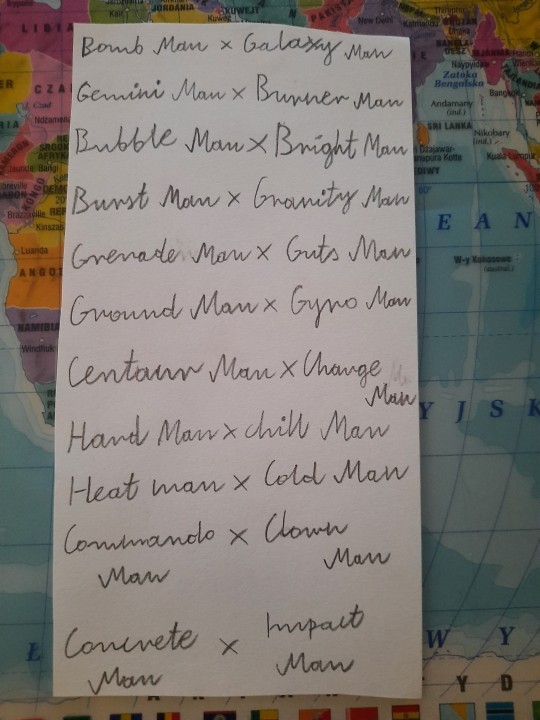 Bomb Man × Galaxy Man
Gemini Man × Burner Man
Bubble Man × Bright Man
Burst Man × Gravity Man
Grenade Man × Guts Man
Ground Man × Gyro Man
Centaur Man × Charge
Man
Hard Man × Chill Man
Heat man × Cold Man
Commando × Clown
Man Man
Concrete × Impact
Man Man
JORDANIA
KUWEJT
PAKISTAN
New Delhi
Kair
Zatoka
Bengalska
Andamany
(ind.)
Nikobary
(ind.)
SRI LANKA
Bangkok
Kuala Lumpur
Luanda
NAMIBIA
E A N
Y J S K
W Y
Ł
Y D